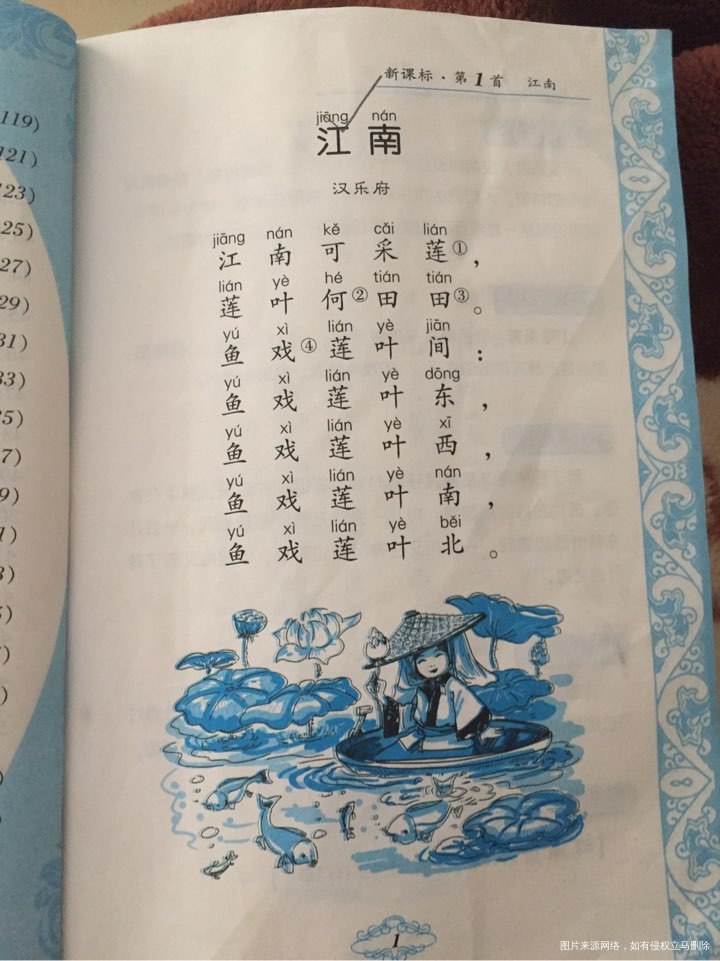 119)
121)
123)
25)
27)
29)
31)
33)
35)
7)
9)
1)
3)
5)
)
)
)
新课标·第1首 江南
jiāng nán
江南
汉乐府
jiāng nán kě cǎi lián
江南可采莲①，
lián yè hé tián tián
莲叶何②田田③。
yú xì lián yè jiān
鱼戏④莲叶间：
yú xì lián yè dōng
鱼戏莲叶东，
yú xì lián yè xī
鱼戏莲叶西，
yú xì lián yè nán
鱼戏莲叶南，
yú xì lián yè běi
鱼戏莲叶北。
1
图片来源网络，如有侵权立马删除